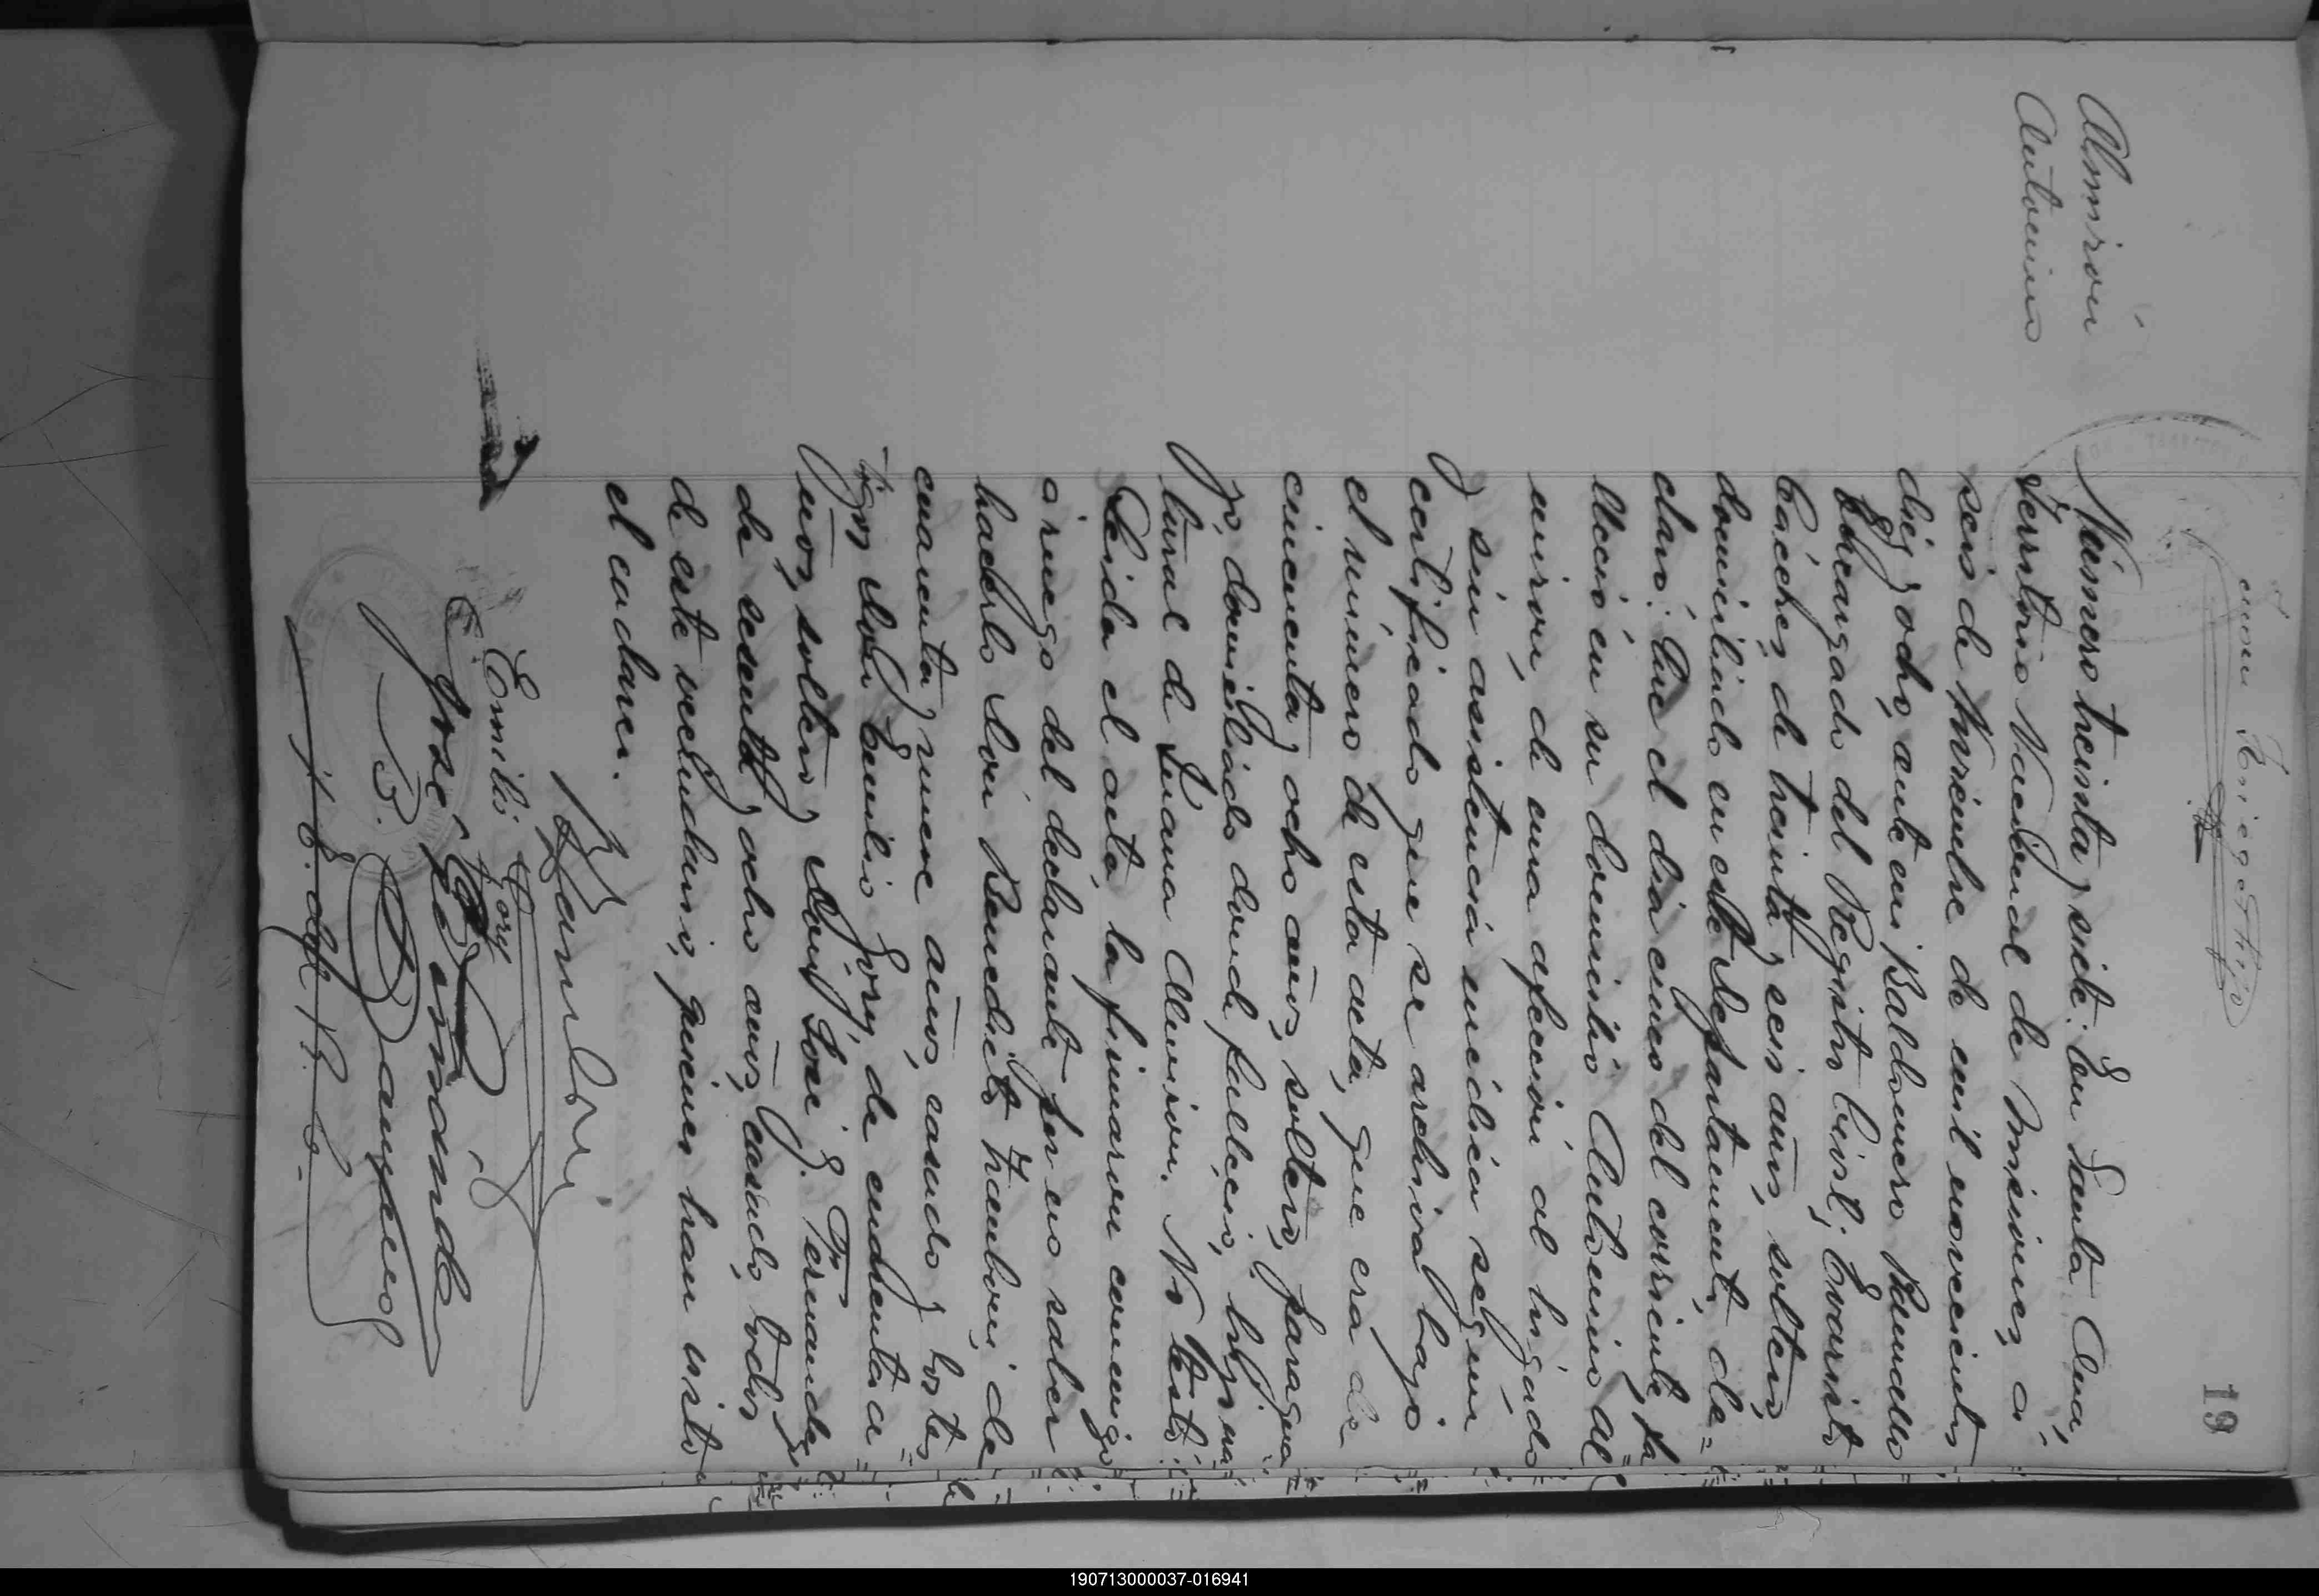 19
Almirón
Antonino
Número treinta y siete: En Santa Ana,
Territorio Nacional de Misiones, a
seis de Noviembre de mil novecientos
diez y ocho, ante mi Baldomero
Encargado del Registro Civil; Evaristo
Cáceres, de treinta y seis años, soltero,
domiciliado en este Departamento, de=
claró: Que el día cinco del corriente, fa
lleció en su domicilio Antonino Al
mirón, de una afección al hígado
y sin asistencia médica según
certificado que se archiva bajo
el número de esta acta, que era de
cincuenta y ocho años, soltero, paragua
yo, domiciliado donde falleció, hijo na
tural de Juana Almirón. No testó
Leida el acta, la firmaron conmigo
a ruego del declarante por no saber
hacerlo Don Benedicto Kamboni de
cuarenta y nueve años, casado y los tes
tigos Don Emilio Gory, de cuarenta a
ños, soltero y Don José G. Fernandez
de sesenta y ocho años, casado, todos
de este vecindario, quienes han visto
el cadaver.
Emilio Gory
José G. Fernandez